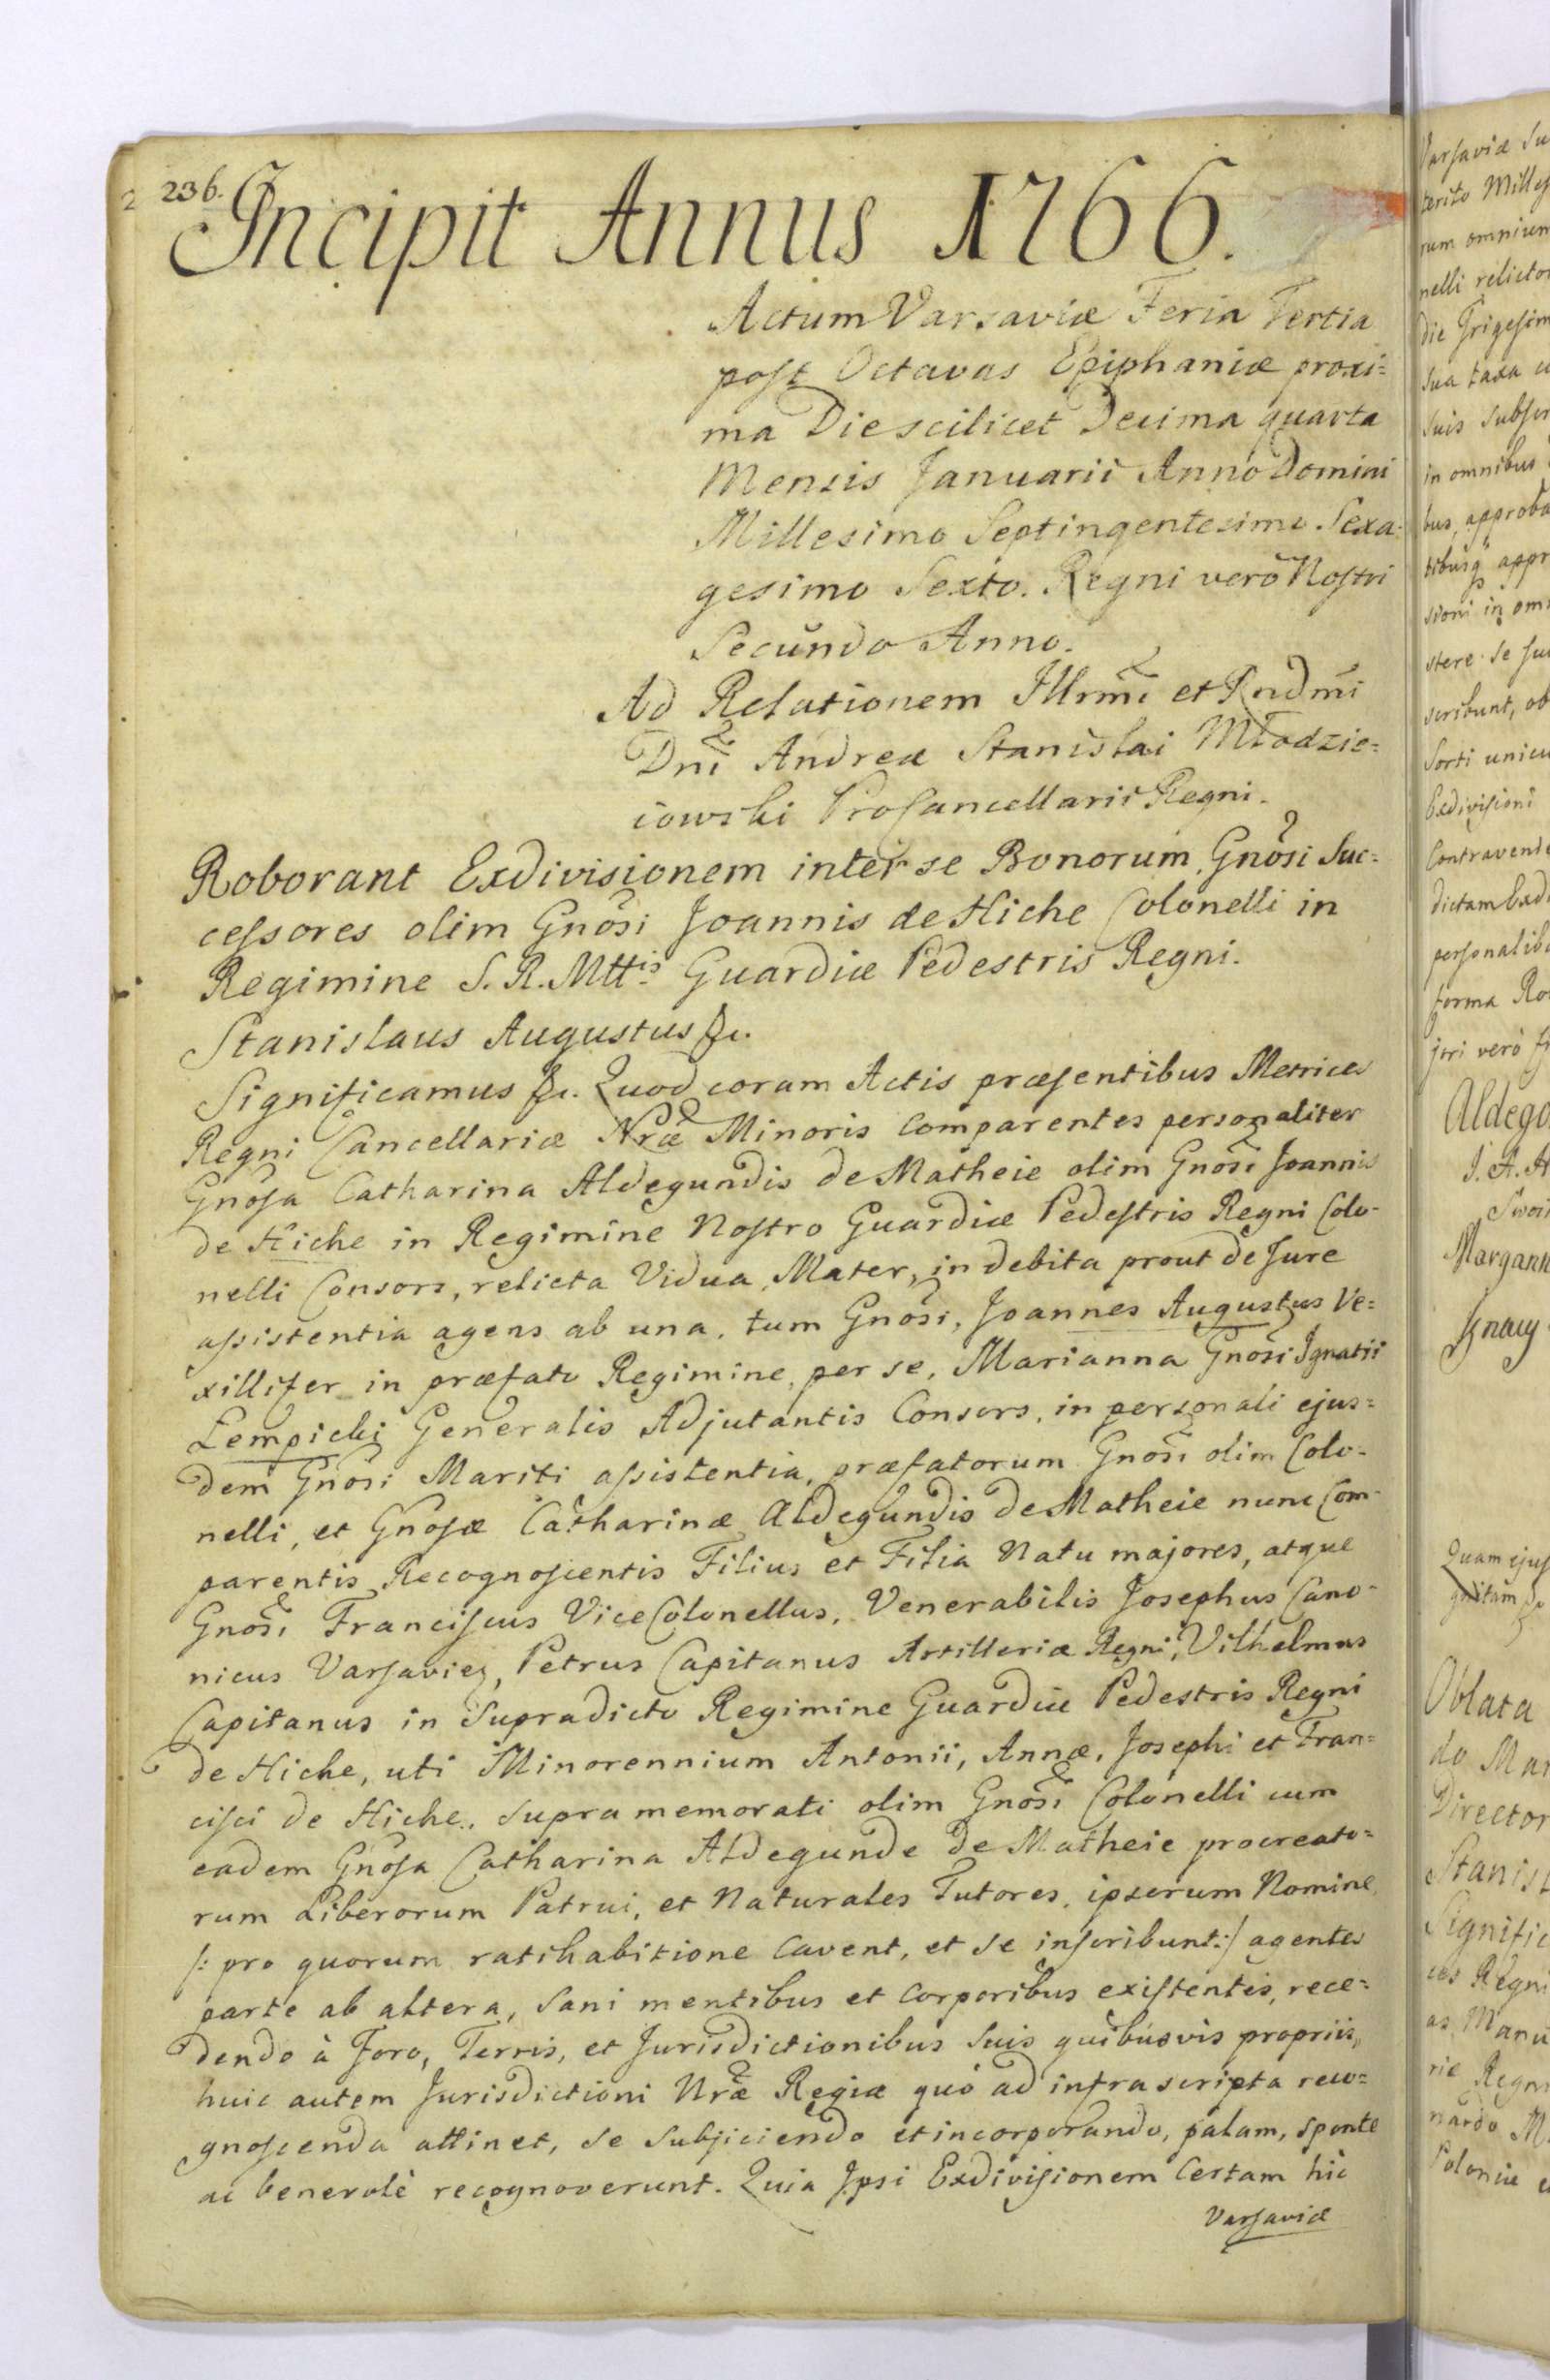 236.
Incipit Annus 1766.
Actum Varsaviæ Feria Tertia
post Octavas Epiphaniæ proxi=
ma Die scilicet Decima quarta
Mensis Januarii Anno Domini
Millesimo Septingentesimo Sexa-
gesimo Sexto. Regni verò Nostri
Secundo Anno.
Ad Relationem Illrm̃i et Rndm̃i
Dnĩ Andreæ Stanislai Młodzie=
iowski ProCancellarii Regni.
Roborant Exdivisionem inter se Bonorum, Gnõsi Suc=
cessores olim Gnõsi Joannis de Hiche Colonelli in
Regimine S. R. Mttis Guardiæ Pedestris Regni.
Stanislaus Augustus &c.
Significamus &c. Quod coram Actis præsentibus Metrices
Regni Cancellariæ Nræ̃ Minoris Comparentes personaliter
Gnõsa Catharina Aldegundis de Matheie olim Gnosĩ Joannis
de Hiche in Regimine Nostro Guardiæ Pedestris Regni Colo-
nelli Consors, relicta Vidua, Mater, in debita prout de Jure
assistentia agens ab una, tum Gnosĩ, Joannes Augustus Ve=
xillifer in præfato Regimine, per se, Marianna Gnosĩ Ignatii
Lempicki Generalis Adjutantis Consors, in personali ejus=
dem Gnõsi Mariti assistentia, præfatorum Gnosĩ olim Colo-
nelli, et Gnosæ Catharinæ Aldegundis de Matheie nunc Com-
parentis Recognoscentis Filius et Filia Natu majores, atque
Gnosĩ Franciscus ViceColonellus, Venerabilis Josephus Cano-
nicus Varsavien, Petrus Capitanus Artilleriæ Regni, Vilhelmus
Capitanus in Supradicto Regimine Guardiæ Pedestris Regni
de Hiche, uti Minorennium Antonii, Annæ, Josephi et Fran=
cisci de Hiche, supra memorati olim Gnosĩ Colonelli cum
eadem Gnõsa Catharina Aldegunde de Matheie procreato=
rum Liberorum Patrui, et Naturales Tutores, ipsorum Nomine
/: pro quorum ratihabitione Cavent, et se inscribunt :/ agentes
parte ab altera, Sani mentibus et Corporibus existentes, rece=
dendo à Foro, Terris, et Jurisdictionibus Suis quibusvis propriis,
huic autem Jurisdictioni Nræ̃ Regiæ quò ad infra scripta reco=
gnoscenda attinet, Se Subjiciendo et incorporando, palam, sponte
ac benevolè recognoverunt. Quia Ipsi Exdivisionem Certam hic
Varsaviæ
Varsaviæ
terito
rum omnium
nelli
die
Sua taxa
Suis
in omnibus
bus,
sioni in
stere se
scribunt, ob
Sorti
Exdivisioni
dictam
forma
jori verò
Aldego
J. A.
Ignacy
Quam
Oblata
do
Director
Stanisl
Signific
Regni
as
nardo
Poloniæ